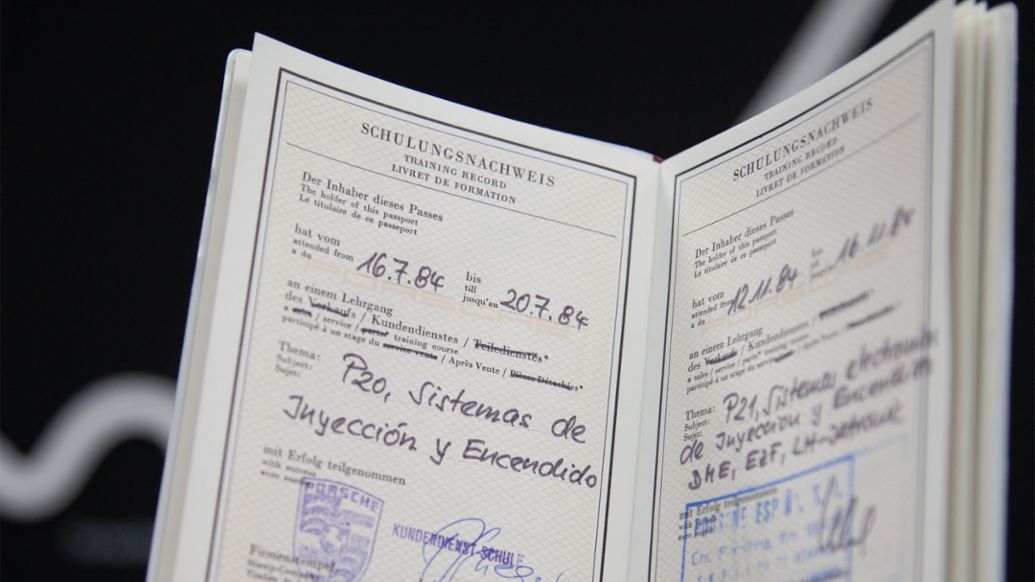 SCHULUNGSNACHWEIS
TRAINING RECORD
LIVRET DE FORMATION
Der Inhaber dieses Passes
The holder of this passport
Le titulaire de ce passeport
hat vom
attended from
a du
16.7.84
bis
till
jusqu'au
20.7.84
an einem Lehrgang
des Verkaufs / Kundendienstes / Teiledienstes*
a sales / service / parts* training course
participé à un stage du service vente / Après Vente / Pièces Détachées*
Thema:
Subject:
Sujet:
P20, Sistemas de
Inyección y Encendido
mit Erfolg teilgenommen
with success
avec succès
PORSCHE
KUNDENDIENST-SCHULE
Firmenstempel
SCHULUNGSNACHWEIS
TRAINING RECORD
LIVRET DE FORMATION
Der Inhaber dieses Passes
The holder of this passport
Le titulaire de ce passeport
hat vom
attended from
a du
12.11.84
bis
till
jusqu'au
16.11.84
an einem Lehrgang
des Verkaufs / Kundendienstes /
a sales / service / parts* training course
participé à un stage du service / Après Vente /
Thema:
Subject:
Sujet:
P21, Sistemas electronicos
de Inyección y Encendido
DME, EZF, LH-Jetronic
mit Erfolg teilgenommen
with
avec